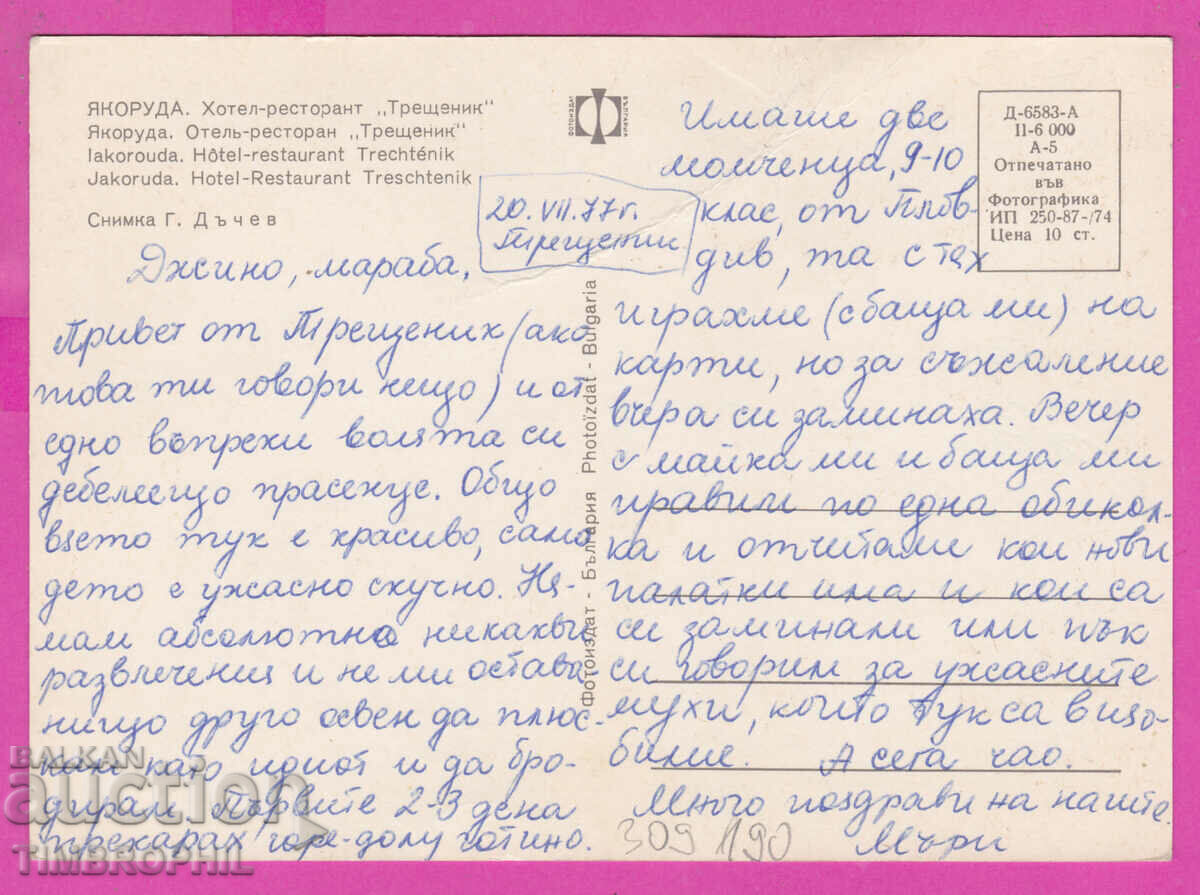 ЯКОРУДА. Хотел-ресторант „Трещеник"
Якоруда. Отель-ресторан „Трещеник"
Iakorouda. Hôtel-restaurant Trechténik
Jakoruda. Hotel-Restaurant Treschtenik
Снимка Г. Дъчев
20. VII. 77 г.
Трещеник
Джино, мараба,
Привет от Трещеник (ако
това ти говори нещо) и от
едно въпреки волята си
дебелеещо прасенце. Общо
взето тук е красиво, само
дето е ужасно скучно. Ня-
мам абсолютно никакви
развлечения и не ми остава
нищо друго освен да плюс-
кам като идиот и да бро-
дирам. Първите 2-3 дена
прекарах горе-долу готино.
ФОТОИЗДАТ БЪЛГАРИЯ
Фотоиздат - България Photoïzdat - Bulgaria
Имаше две
момченца, 9-10
клас, от Плов-
див, та с тях
играхме (с баща ми) на
карти, но за съжаление
вчера си заминаха. Вечер
с майка ми и баща ми
правим по една обикол-
ка и отчитаме кои нови
палатки има и кои са
си заминали или пък
си говорим за ужасните
мухи, които тук са в изо-
билие. А сега чао.
Много поздрави на наште.
Мъри
Д-6583-А
II-6 000
А-5
Отпечатано
във
Фотографика
ИП 250-87-/74
Цена 10 ст.
309190
BALKAN
auction
TIMBROPHIL